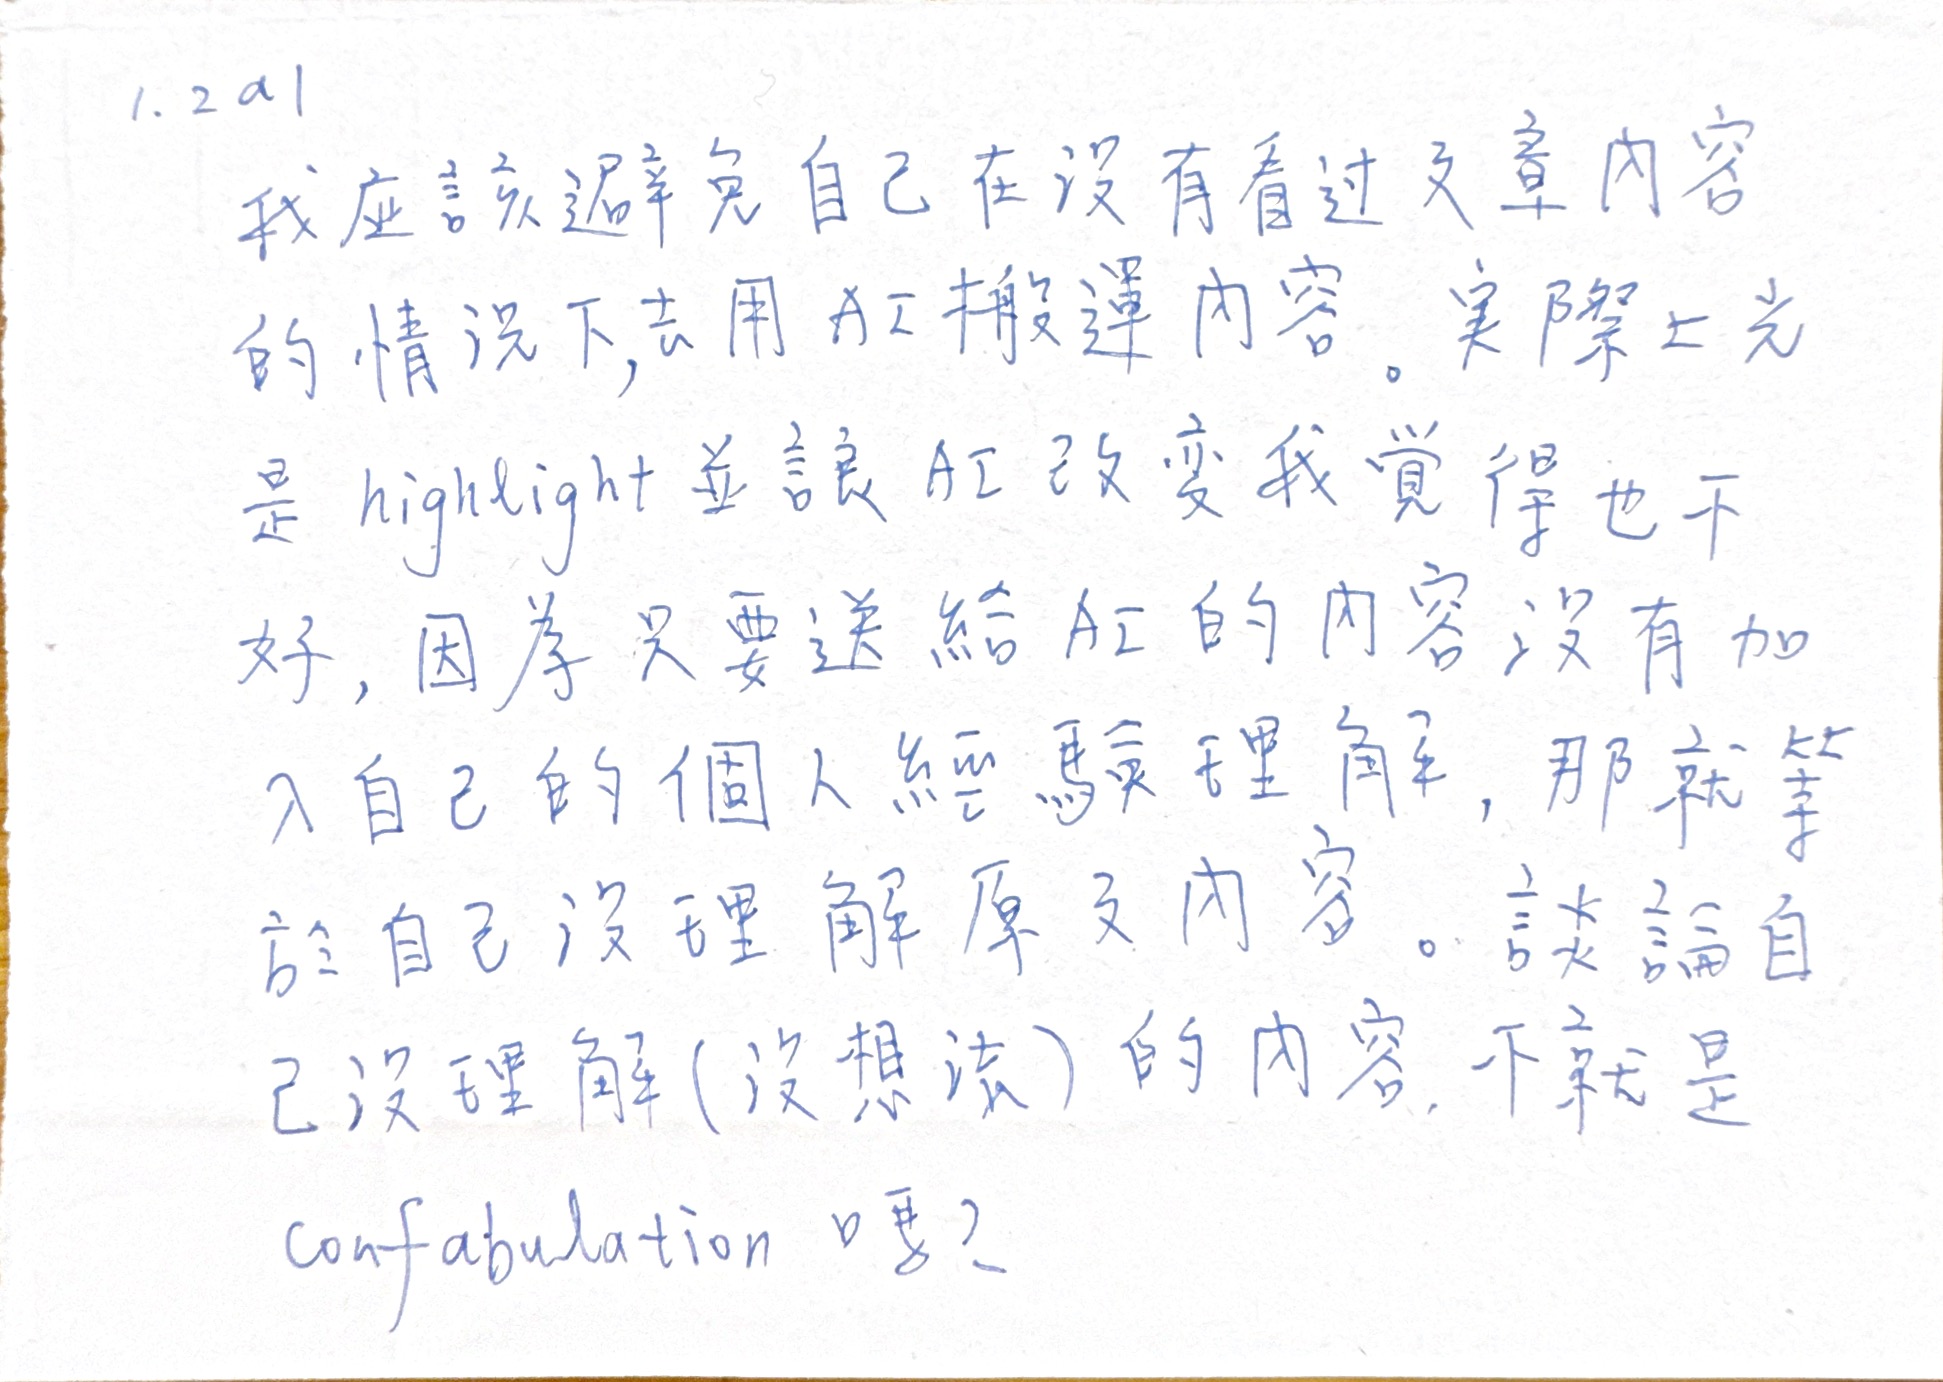 1.2a1
我应該避免自己在没有看过文章內容
的情況下,去用AI搬運內容。実際上光
是highlight並讓AI改変我覚得也不
好,因為只要送給AI的內容没有加
入自己的個人經驗理解,那就等
於自己没理解原文內容。談論自
己没理解(没想法)的內容,不就是
confabulation嗎?